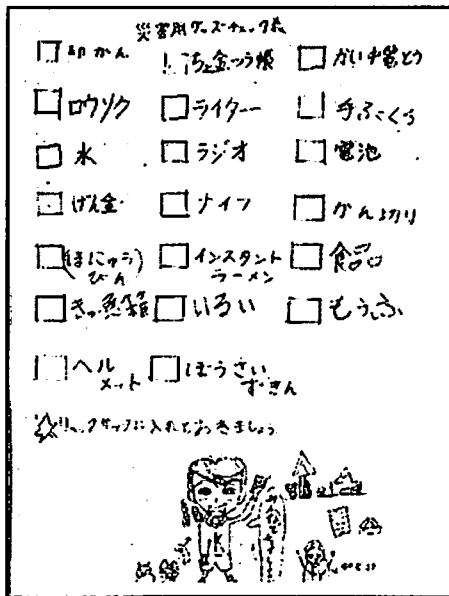 災害用グッズチェック表
印かん
ちょ金つう帳
かい中電とう
ロウソク
ライター
手ぶくろ
水
ラジオ
電池
げん金
ナイフ
かん切り
(ほにゅう
びん)
インスタント
ラーメン
食品
きゅう急箱
いるい
もうふ
ヘル
メット
ぼうさい
ずきん
☆リュックサックに入れておきましょう